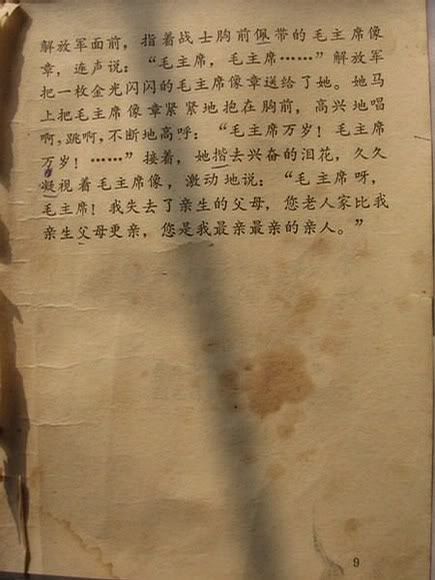 解放军面前，指着战士胸前佩带的毛主席像
章，连声说：“毛主席，毛主席……”解放军
把一枚金光闪闪的毛主席像章送给了她。她马
上把毛主席像章紧紧地抱在胸前，高兴地唱
啊，跳啊，不断地高呼：“毛主席万岁！毛主席
万岁！……”接着，她揩去兴奋的泪花，久久
凝视着毛主席像，激动地说：“毛主席呀，
毛主席！我失去了亲生的父母，您老人家比我
亲生父母更亲，您是我最亲最亲的亲人。”
9